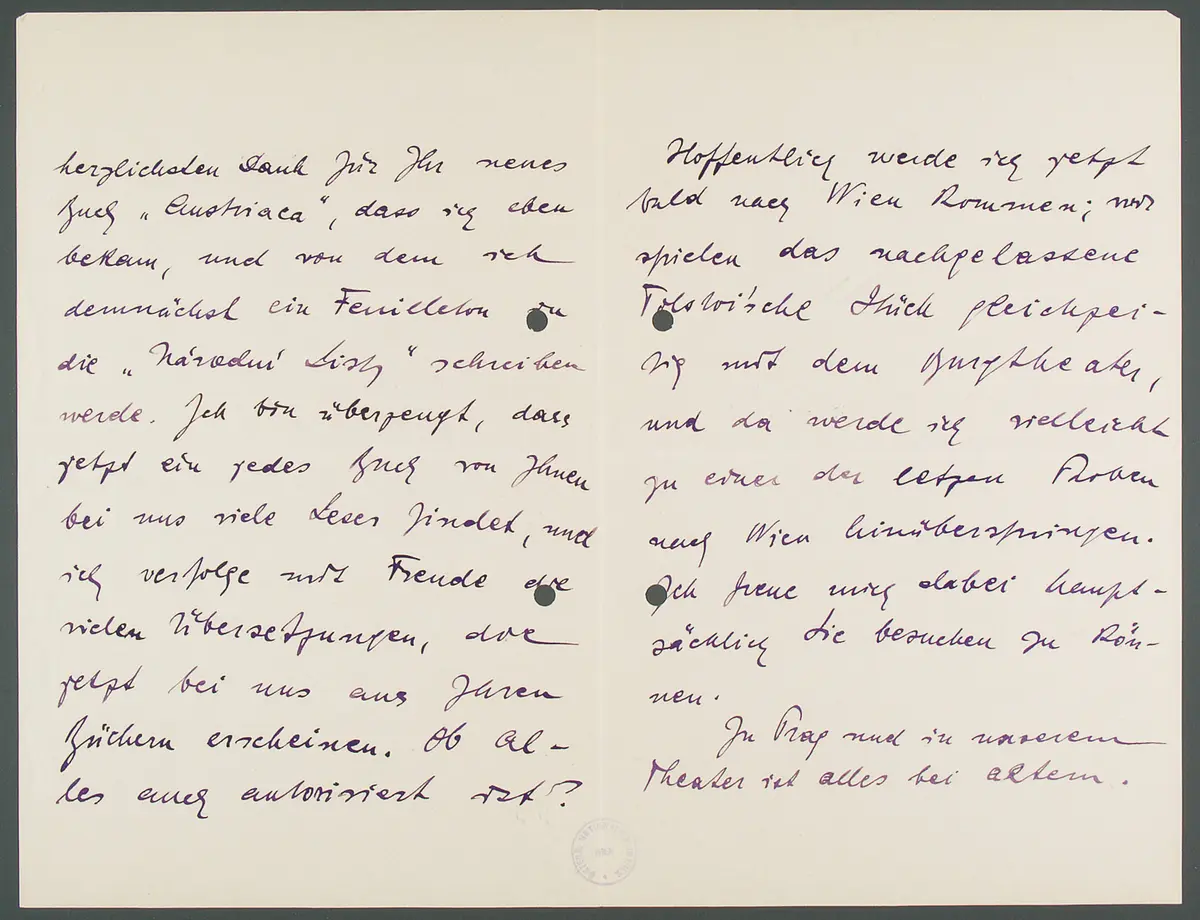 herzlichsten Dank für Ihr neues
Buch „Austriaca", dass ich eben
bekam, und von dem ich
demnächst ein Feuilleton in
die „Národní Listy" schreiben
werde. Ich bin überzeugt, dass
jetzt ein jedes Buch von Ihnen
bei uns viele Leser findet, und
ich verfolge mit Freude die
vielen Übersetzungen, die
jetzt bei uns aus Ihren
Büchern erscheinen. Ob al-
les auch autorisiert ist?
Hoffentlich werde ich jetzt
bald nach Wien kommen; wir
spielen das nachgelassene
Tolstoi'sche Stück gleichzei-
tig mit dem Burgtheater,
und da werde ich vielleicht
zu einer der letzen Proben
nach Wien hinüberspringen.
Ich freue mich dabei haupt-
sächlich Sie besuchen zu kön-
nen.
In Prag und in unserem
Theater ist alles bei altem.